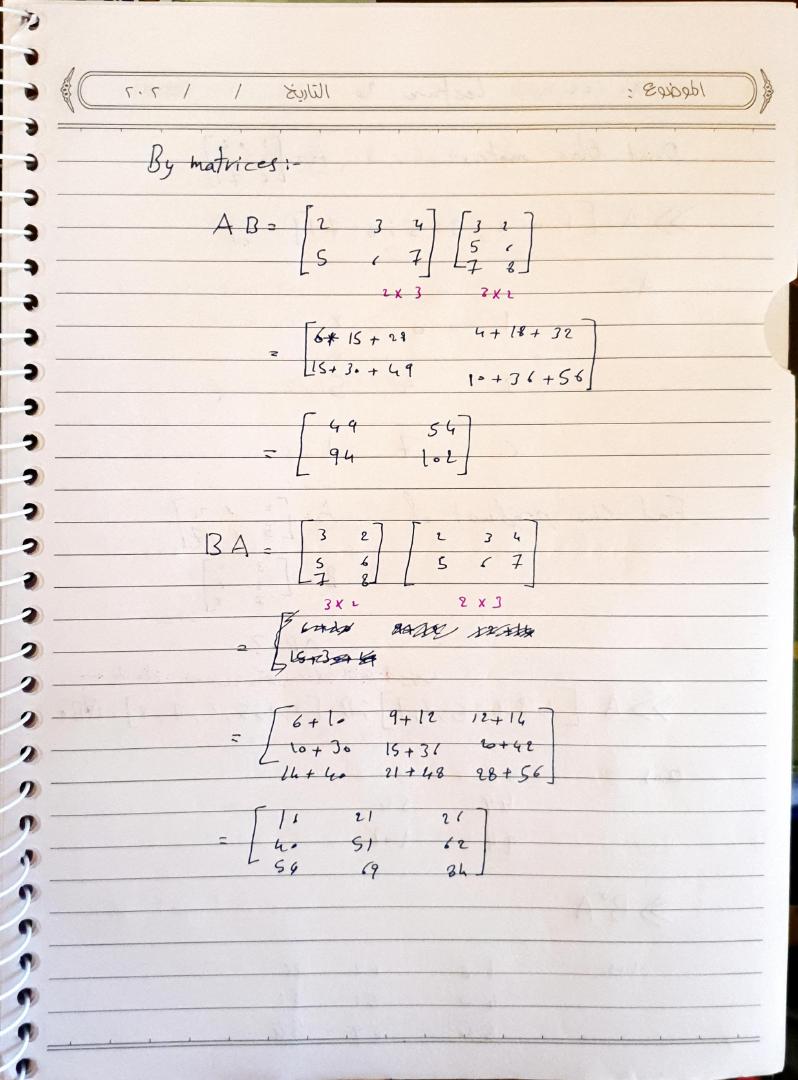 الموضوع : التاريخ / / ٢٠٢
By matrices :-
AB = [2 3 4] [3 2]
[5 6 7] [5 6]
[7 8]
2 x 3 3 x 2
= [6+ 15 + 28 4 + 18 + 32]
[15 + 30 + 49 10 + 36 + 56]
= [49 54]
[94 102]
BA = [3 2] [2 3 4]
[5 6] [5 6 7]
[7 8]
3 x 2 2 x 3
=
= [6 + 10 9 + 12 12 + 14]
[10 + 30 15 + 36 20 + 42]
[14 + 40 21 + 48 28 + 56]
= [16 21 26]
[40 51 62]
[54 69 84]